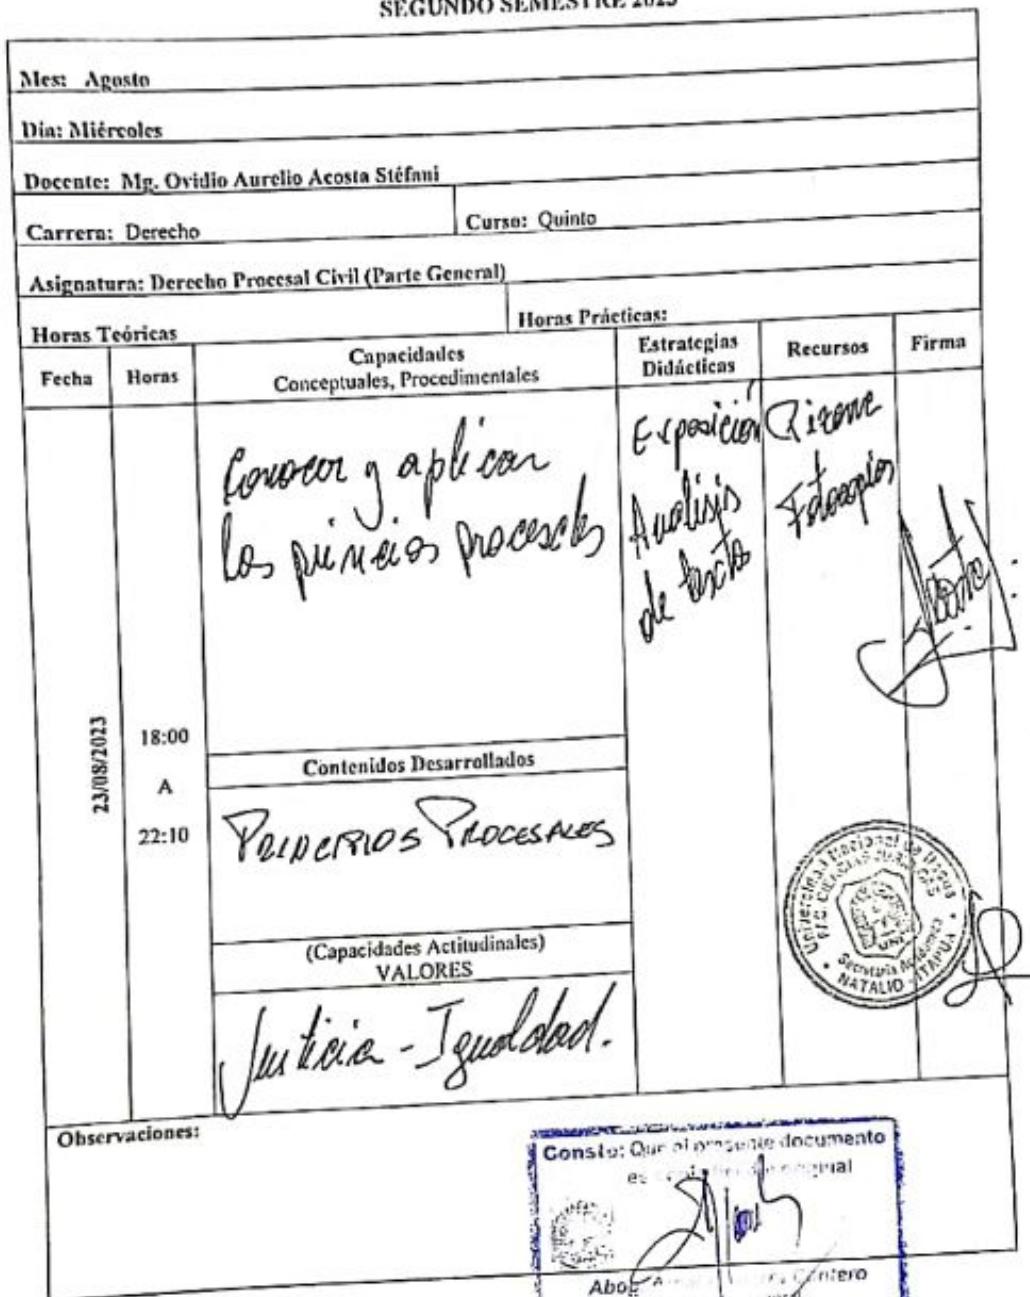 SEGUNDO SEMESTRE 2023
Mes: Agosto
Día: Miércoles
Docente: Mg. Ovidio Aurelio Acosta Stéfani
Carrera: Derecho
Curso: Quinto
Asignatura: Derecho Procesal Civil (Parte General)
Horas Teóricas
Horas Prácticas:
Fecha
Horas
Capacidades
Conceptuales, Procedimentales
Estrategias
Didácticas
Recursos
Firma
Conocer y aplicar
los principios procesales
Exposición
Análisis
de texto
Pizarra
Fotocopias
23/08/2023
18:00
A
22:10
Contenidos Desarrollados
PRINCIPIOS PROCESALES
(Capacidades Actitudinales)
VALORES
Justicia - Igualdad.
Universidad Nacional de Itapúa
FAC. CIENCIAS JURIDICAS
UNI
Secretaría Académica
NATALIO - ITAPUA
Observaciones:
Consta: Que el presente documento
es original
Abog. Cantero